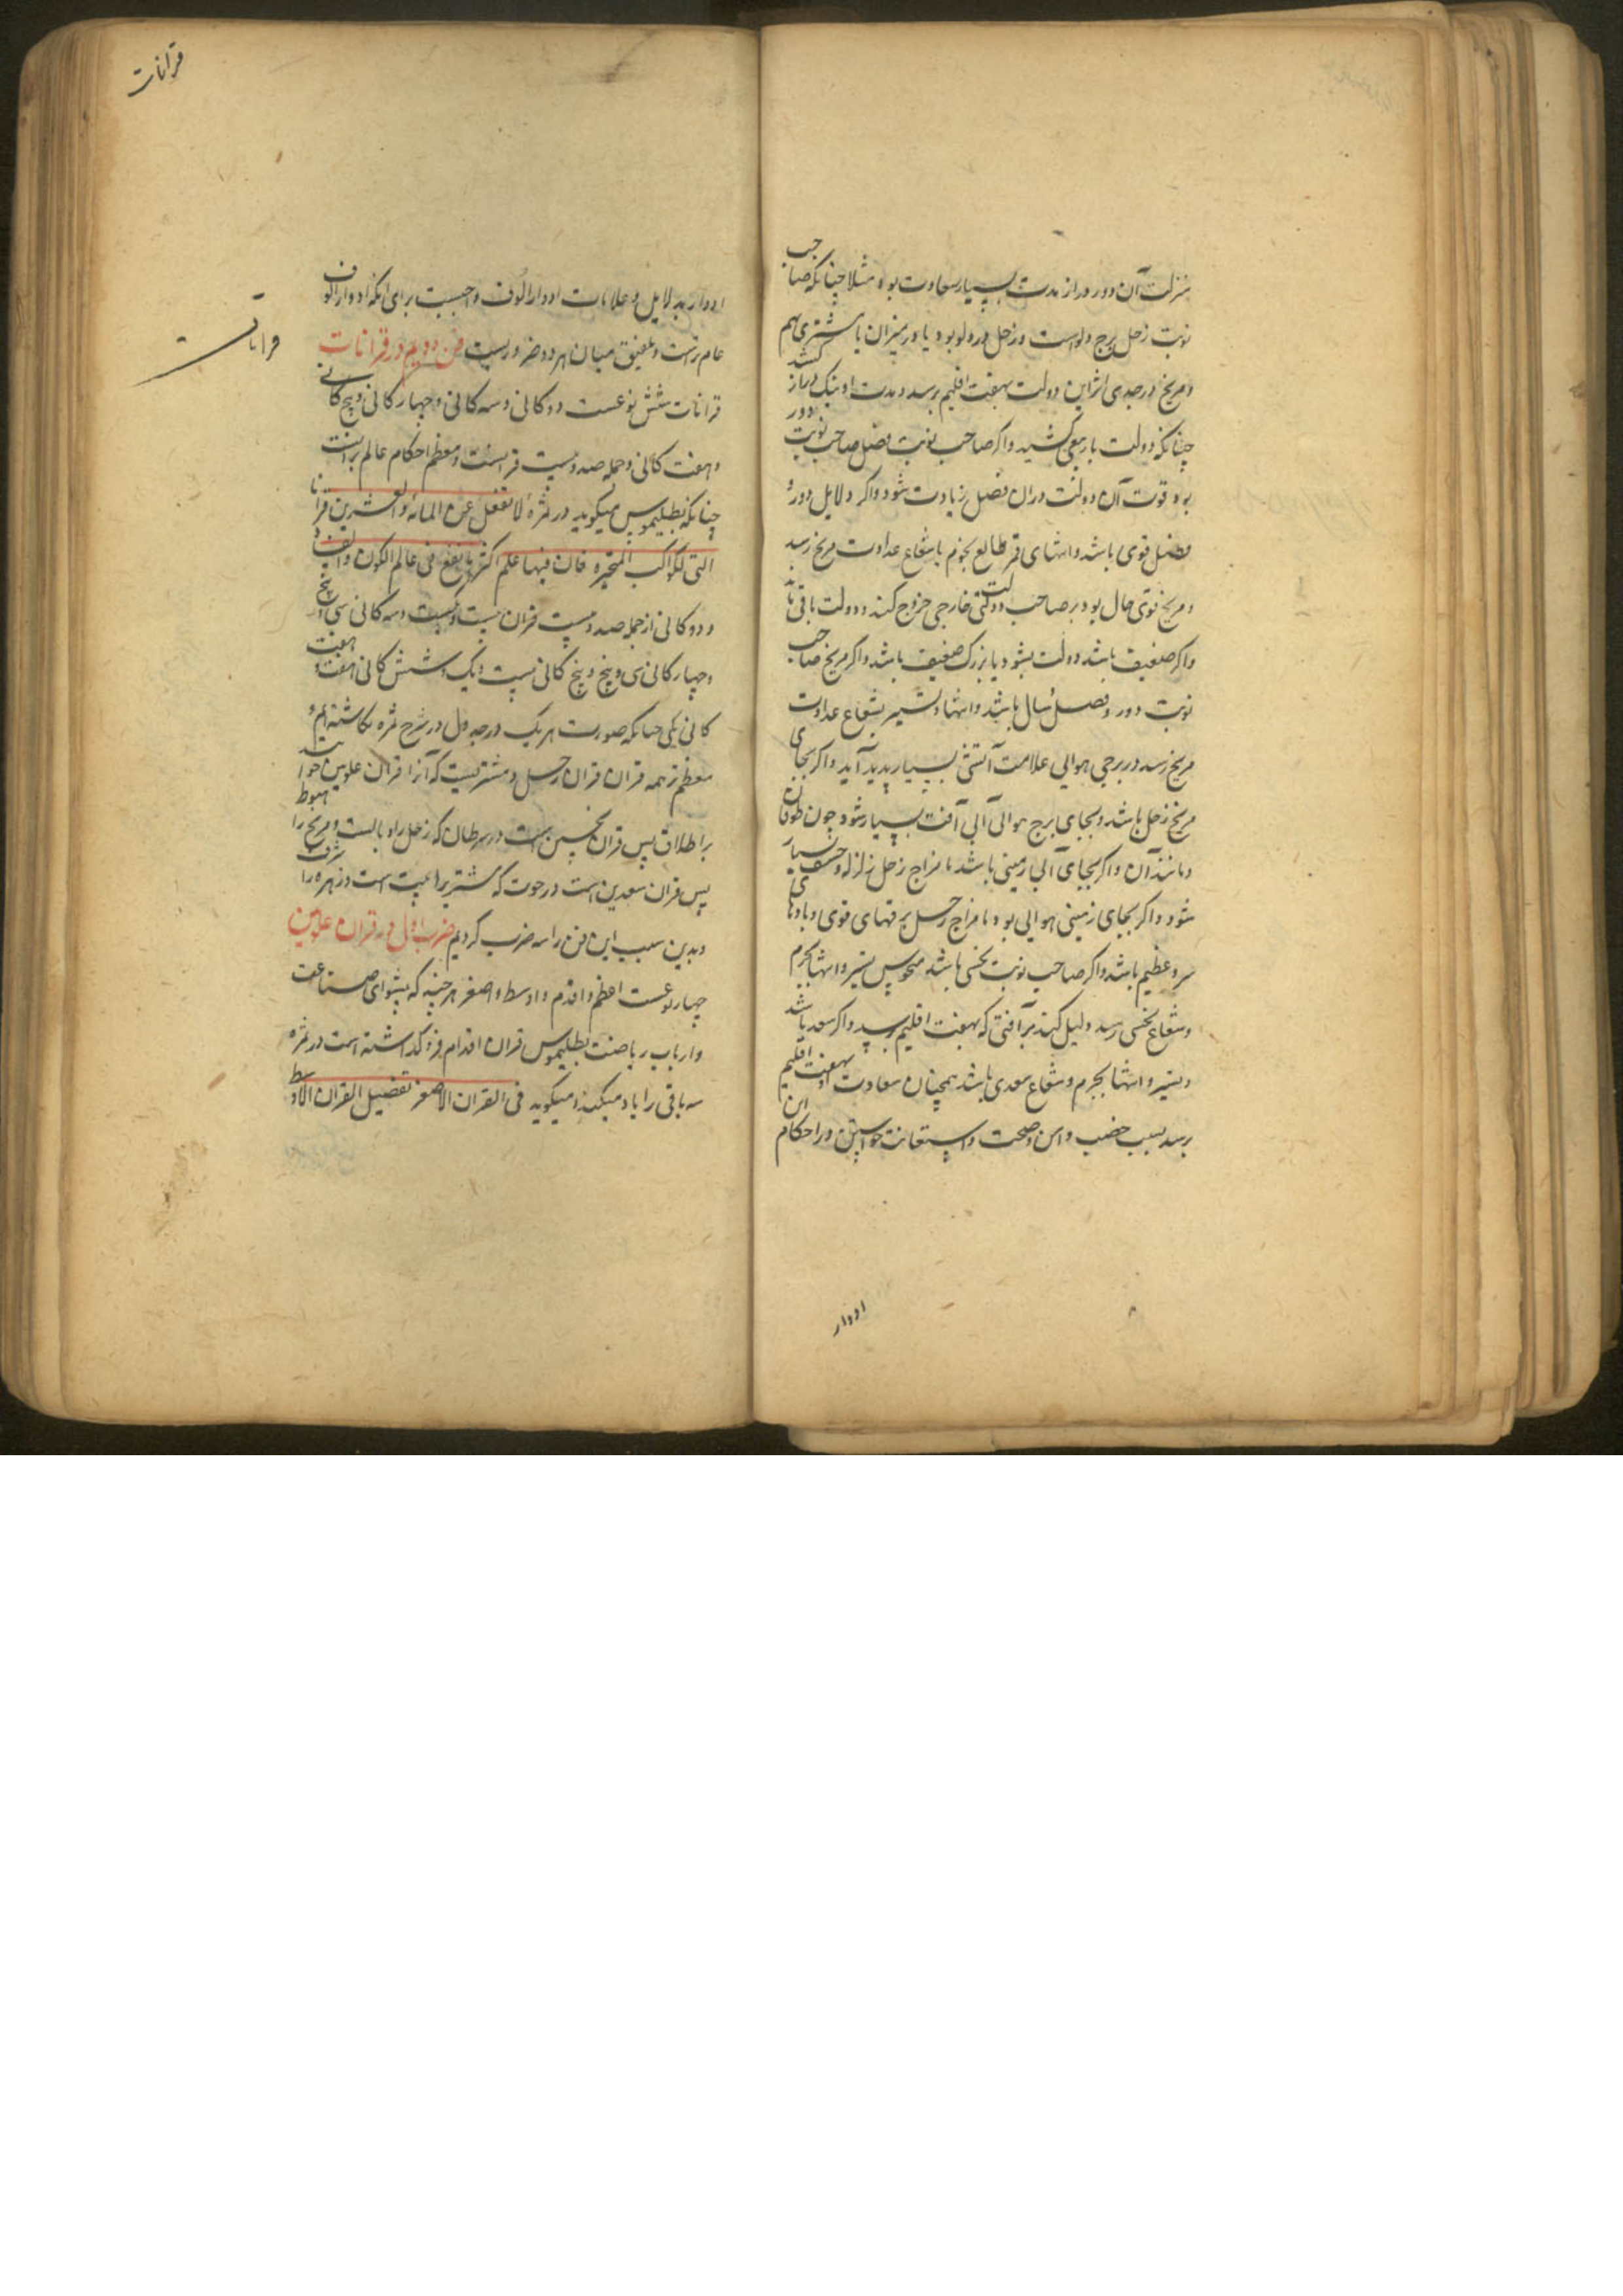 منزلت آن دور دراز مدت بسیار سعادت بود مثلا چنانکه صاحب
نوبت زحل برج دلو است و زحل در دلو بود یا در میزان با مشتری بهم
و مریخ در جدی اثر این دولت بهفت اقلیم برسد و مدت او نیک دراز کشد
چنانکه دولت باربعی کشید و اگر صاحب نوبت فصل صاحب نوبت دور
بود قوت آن دولت در آن فصل زیادت شود و اگر دلایل دور و
فصل قوی باشد و انتهای قمر طالع بجرم یا شعاع عداوت مریخ رسد
و مریخ قوی حال بود بر صاحب دولت خارجی خروج کند و دولت باقی
و اگر ضعیف باشد دولت بشود یا بزرگ ضعیف باشد و اگر مریخ صاحب
نوبت دور و فصل سال باشد و انتها و تسییر بشعاع عداوت
مریخ رسد در برجی هوایی علامت آتشی بسیار پدید آید و اگر بجای
مریخ زحل باشد و بجای برج هوایی آبی آفت بسیار شود چون طوفان
و مانند آن و اگر بجای آبی زمینی باشد با مزاج زحل زلزله و خسف بسیار
شود و اگر بجای زمینی هوایی بود با مزاج زحل برقهای قوی و بادهای
سرد عظیم باشد و اگر صاحب نوبت نحسی باشد منحوس تسییر و انتها بجرم
و شعاع نحسی رسد دلیل کند بر آفتی که بهفت اقلیم برسد و اگر سعد باشد
و تسییر و انتها بجرم و شعاع سعدی باشد همچنان سعادت او بهفت اقلیم
برسد بسبب خصب و امن و صحت و استعانت خواستن در احکام این
ادوار
قرانات
ادوار بدلایل و علامات ادوار الوف واجبست برای آنکه ادوار الوف
عام ترست و تلفیق میان هر دو ضروریست فن دویم در قرانات
قرانات شش نوعست دوکانی و سه کانی و چهار کانی و پنج کانی
و هفت کانی و جمله صد و بیست قرانست و معظم احکام عالم برانست
چنانکه بطلیموس میگوید در ثمره لا تغفل عن المائه و العشرین قرانا
التی للکواکب المتحیره فان فیها علم اکثر ما یقع فی عالم الکون و الفساد
و دوکانی از جمله صد و بیست قران بیست و یکست و سه کانی سی و پنج
و چهار کانی سی و پنج و پنج کانی بیست و یک و شش کانی هفت و هفت
کانی یکی چنانکه صورت هر یک در جدول در شرح ثمره نگاشته ایم و
معظم ترهمه قران قران زحل و مشتریست که آنرا قران علویین خوانند
بر اطلاق پس قران نحسین است در سرطان که زحل را وبالست و مریخ را هبوط
پس قران سعدین است در حوت که مشتری را بیت است و زهره را شرف
و بدین سبب این فن را سه ضرب کردیم ضرب اول در قران علویین
چهار نوعست اعظم و اقدم و اوسط و اصغر هر چند که پیشوای صناعت
و ارباب ریاضت بطلیموس قران اقدام فرو گذاشته است در ثمره
سه باقی را یاد میکند و میگوید فی القران الاصغر تفضیل القران الاوسط
قرانات